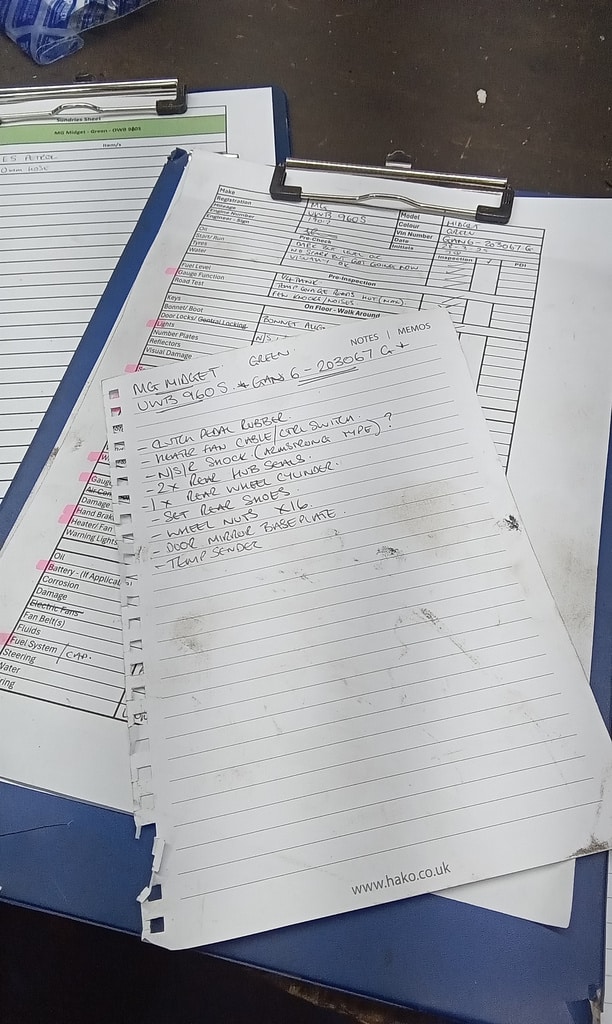 Sundries Sheet
MG Midget - Green - UWB 960S
Item/s
ES PETROL
Make
MG
Model
MIDGET
Registration
UWB 960S
Colour
GREEN
Mileage
Vin Number
GAN6-203067 G
Engine Number
Date
Engineer - Sign
Initials
Oil
Inspection
PDI
Start/ Run
Tyres
Water
Pre-Inspection
Fuel Level
1/4 TANK
Gauge Function
Road Test
FEW KNOCKS/NOISES
On Floor - Walk Around
Keys
Bonnet/ Boot
Door Locks/ Central Locking
Lights
N/S
Number Plates
Reflectors
Visual Damage
NOTES | MEMOS
MG MIDGET GREEN
UWB 960S. * GAN 6 - 203067 G *
- CLUTCH PEDAL RUBBER
- HEATER FAN CABLE/CTRL SWITCH.
- N/S/R SHOCK (ARMSTRONG TYPE) ?
- 2 x REAR HUB SEALS.
- 1 x REAR WHEEL CYLINDER.
- SET REAR SHOES.
- WHEEL NUTS x16.
- DOOR MIRROR BASEPLATE.
- TEMP SENDER
Damage
Hand Brake
Heater/ Fan
Warning Lights
Oil
Battery - (If Applicab
Corrosion
Damage
Electric Fans
Fan Belt(s)
Fluids
Fuel System / CAP.
Steering
Water
ring
www.hako.co.uk